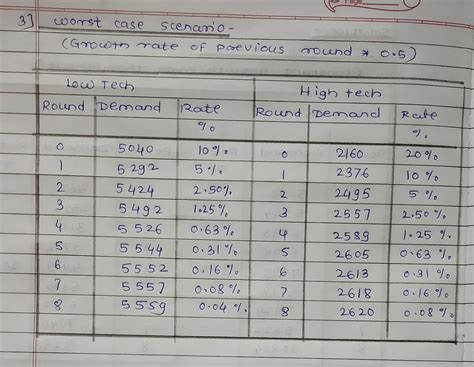 3] worst case scenario-
(Growth rate of previous round * 0.5)
Low Tech High tech
Round Demand Rate % Round Demand Rate %
0 5040 10% 0 2160 20%
1 5292 5% 1 2376 10%
2 5424 2.50% 2 2495 5%
3 5492 1.25% 3 2557 2.50%
4 5526 0.63% 4 2589 1.25%
5 5544 0.31% 5 2605 0.63%
6 5552 0.16% 6 2613 0.31%
7 5557 0.08% 7 2618 0.16%
8 5559 0.04% 8 2620 0.08%